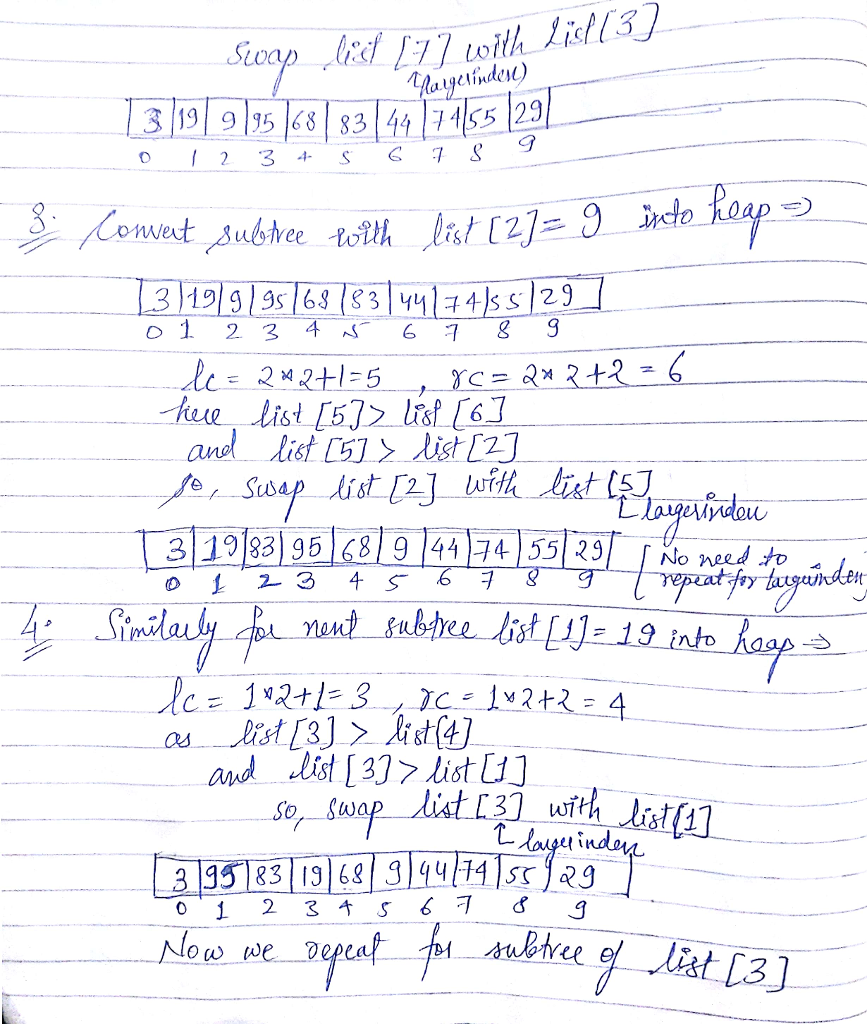 Swap list [7] with List[3]
↑(largerindex)
3 | 19 | 9 | 95 | 68 | 83 | 44 | 74 | 55 | 29
0 1 2 3 4 5 6 7 8 9
3. Convert subtree with list [2] = 9 into heap ⇒
3 | 19 | 9 | 95 | 68 | 83 | 44 | 74 | 55 | 29
0 1 2 3 4 5 6 7 8 9
lc = 2*2+1=5 , rc = 2*2+2 = 6
here list [5] > list [6]
and list [5] > list [2]
so, swap list [2] with list [5]
↑ largerindex
3 | 19 | 83 | 95 | 68 | 9 | 44 | 74 | 55 | 29 [No need to
0 1 2 3 4 5 6 7 8 9 repeat for largerindex
4. Similarly for next subtree list [1] = 19 into heap ⇒
lc = 1*2+1=3 , rc = 1*2+2 = 4
as list [3] > list[4]
and list [3] > list [1]
so, swap list [3] with list[1]
↑ largerindex
3 | 95 | 83 | 19 | 68 | 9 | 44 | 74 | 55 | 29
0 1 2 3 4 5 6 7 8 9
Now we repeat for subtree of list [3]